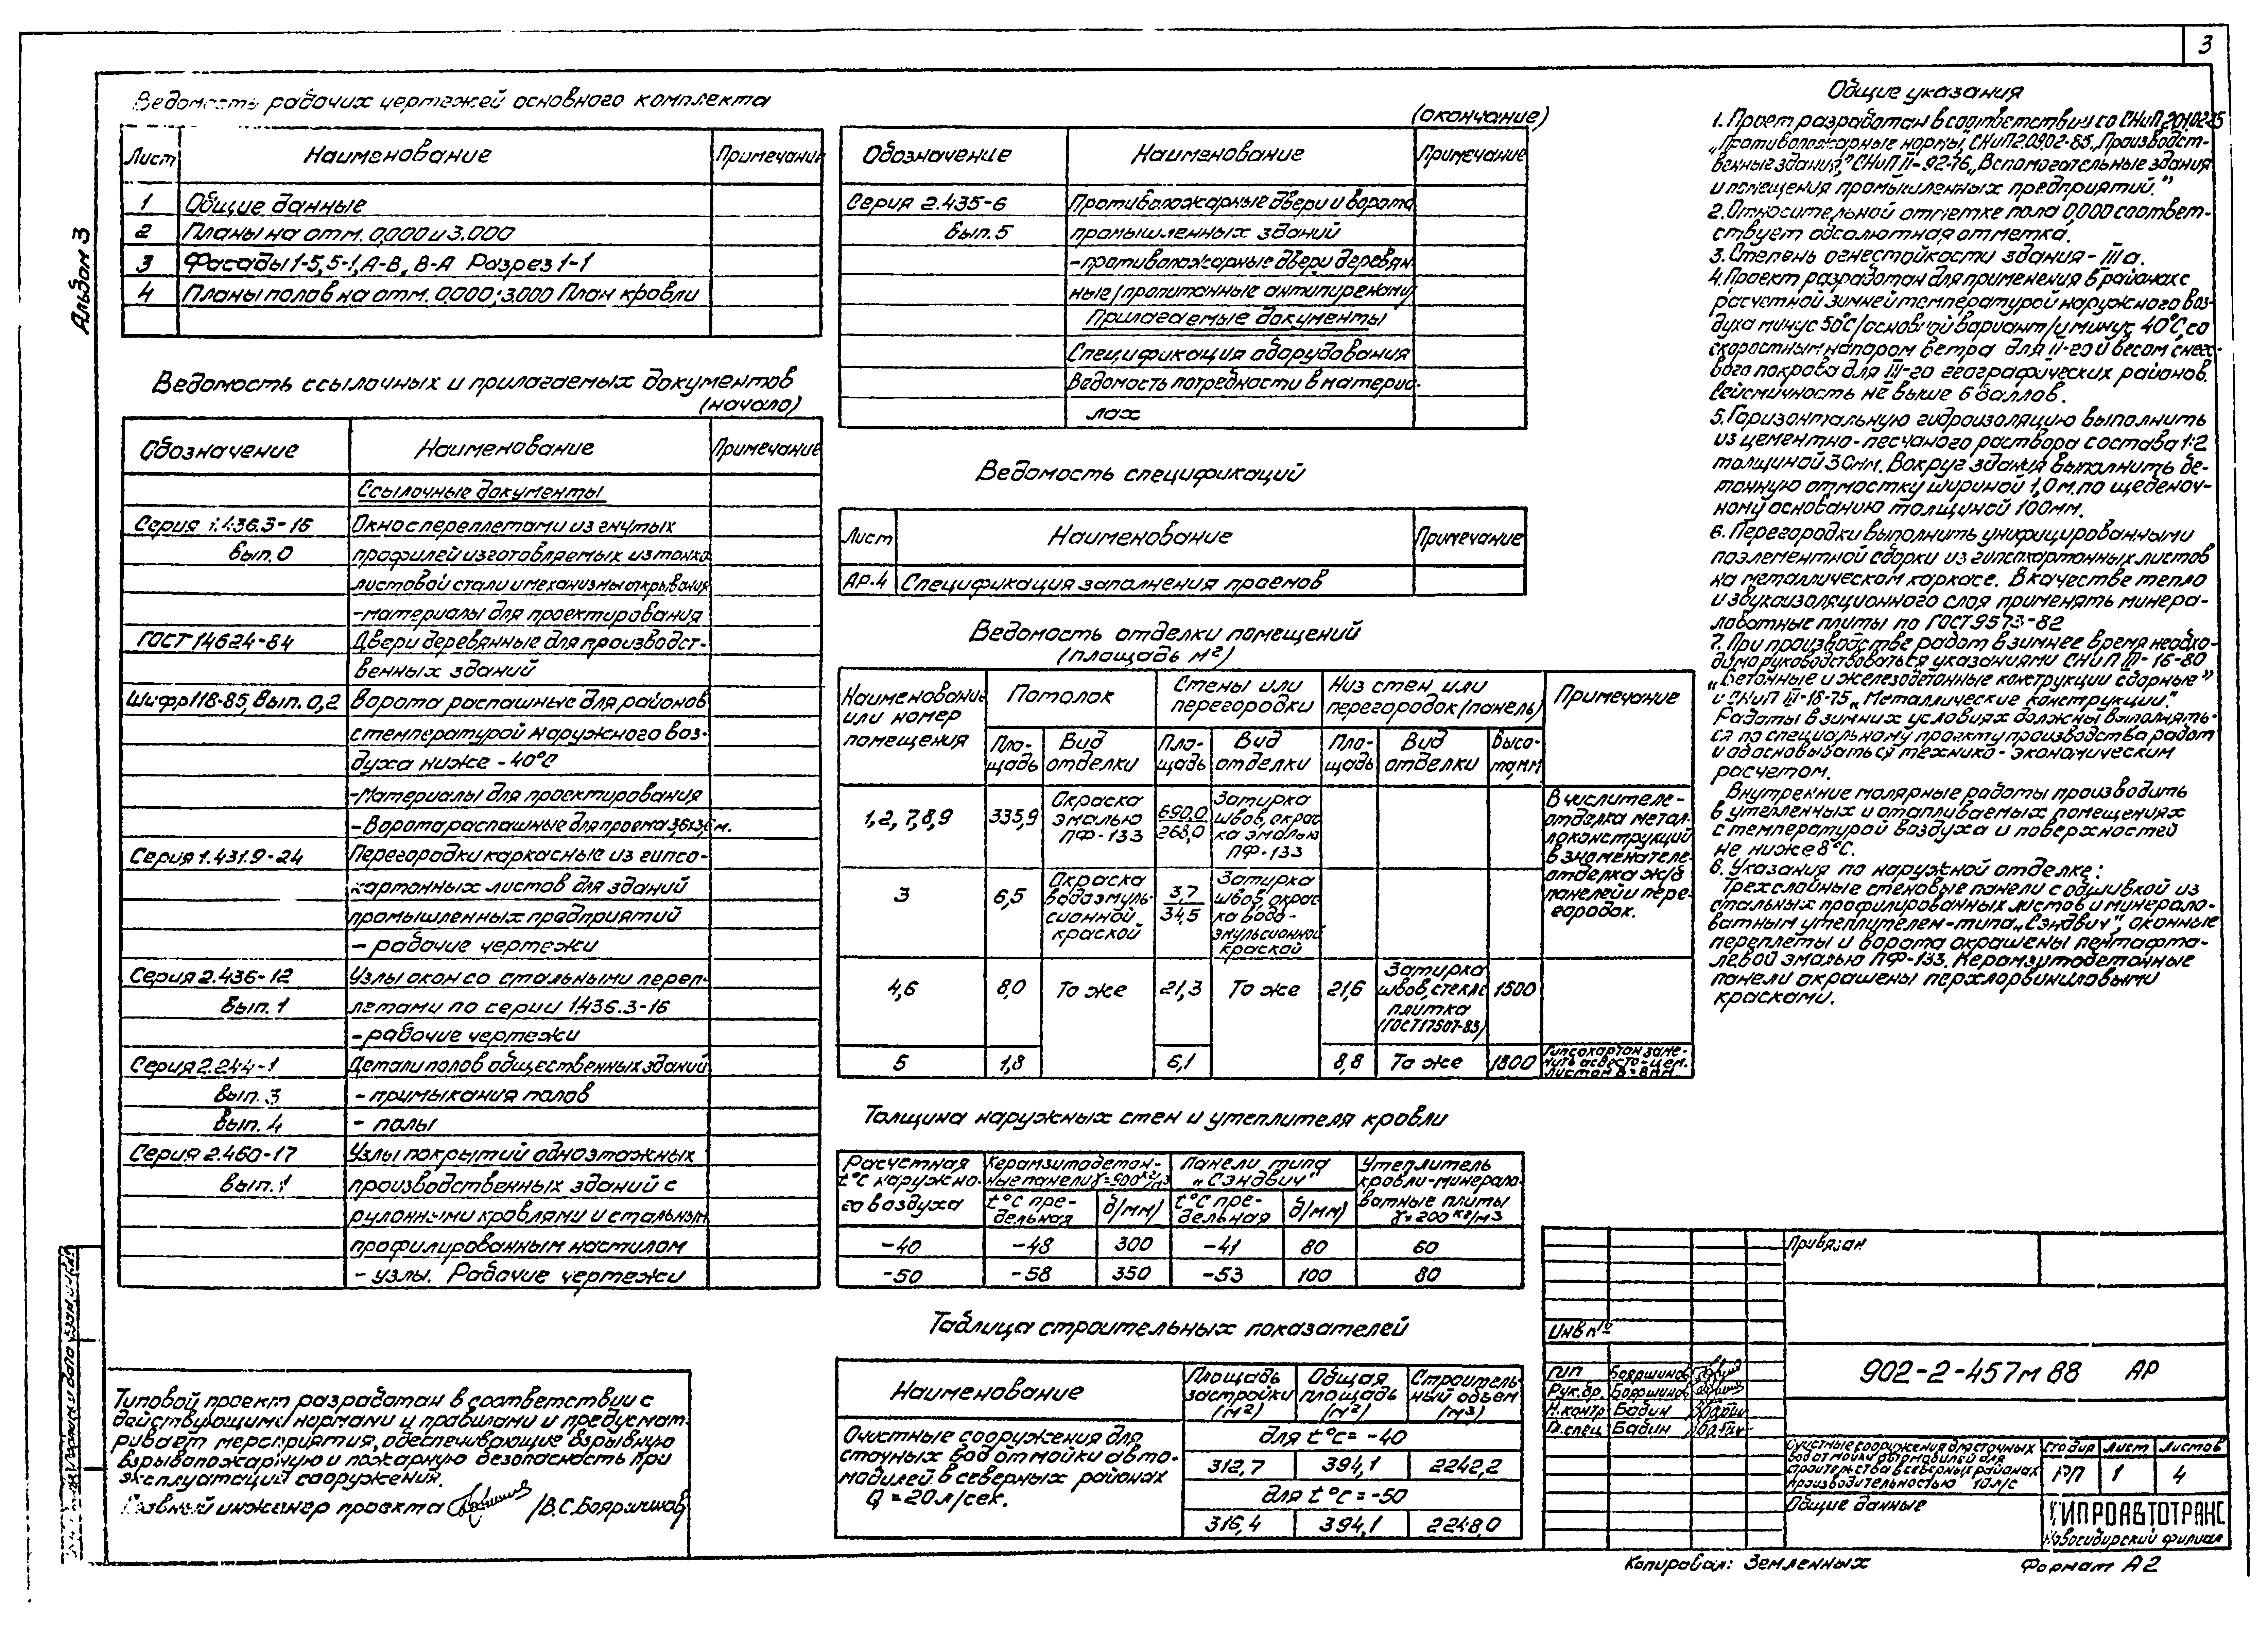 3
Альбом 3
Ведомость рабочих чертежей основного комплекта
Лист Наименование Примечание
1 Общие данные
2 Планы на отм. 0,000 и 3.000
3 Фасады 1-5, 5-1, А-В, В-А Разрез 1-1
4 Планы полов на отм. 0.000; 3.000 План кровли
Ведомость ссылочных и прилагаемых документов
(начало)
Обозначение Наименование Примечание
Ссылочные документы
Серия 1.436.3-16 Окно с переплетами из гнутых
вып. 0 профилей изготовляемых из тонко
листовой стали и механизмы открывания
-материалы для проектирования
ГОСТ 14624-84 Двери деревянные для производст-
венных зданий
Шифр 118-85, вып. 0,2 Ворота распашные для районов
с температурой наружного воз-
духа ниже -40°С
-Материалы для проектирования
-Ворота распашные для проема 3,6х3,6м.
Серия 1.431.9-24 Перегородки каркасные из гипсо-
картонных листов для зданий
промышленных предприятий
- рабочие чертежи
Серия 2.436-12 Узлы окон со стальными переп-
вып. 1 летами по серии 1.436.3-16
-рабочие чертежи
Серия 2.244-1 Детали полов общественных зданий
вып. 3 - примыкания полов
вып. 4 - полы
Серия 2.460-17 Узлы покрытий одноэтажных
вып. 1 производственных зданий с
рулонными кровлями и стальным
профилированным настилом
- узлы. Рабочие чертежи
Типовой проект разработан в соответствии с
действующими нормами и правилами и предусмат-
ривает мероприятия, обеспечивающие взрывную
взрывопожарную и пожарную безопасность при
эксплуатации сооружения.
Главный инженер проекта /В.С. Бояршинов/
(окончание)
Обозначение Наименование Примечание
Серия 2.435-6 Противопожарные двери и ворота
вып. 5 промышленных зданий
-противопожарные двери деревян
ные/пропитанные антипиренами
Прилагаемые документы
Спецификация оборудования
Ведомость потребности в материа-
лах
Ведомость спецификаций
Лист Наименование Примечание
АР-4 Спецификация заполнения проемов
Ведомость отделки помещений
(площадь м²)
Наименование или номер помещения Потолок Стены или перегородки Низ стен или перегородок (панель) Примечание
Пло-щадь Вид отделки Пло-щадь Вид отделки Пло-щадь Вид отделки Высо-та, мм
1,2, 7,8,9 335,9 Окраска эмалью ПФ-133 690,0/268,0 Затирка швов, окрас ка эмалью ПФ-133 В числителе- отделка метал- локонструкций в знаменателе- отделка ж/б панелей и пере- городок.
3 6,5 Окраска водоэмуль- сионной краской 3,7/34,5 Затирка швов, окрас ка водо- эмульсионной краской
4,6 8,0 То же 21,3 То же 21,6 Затирка швов, стекл. плитка (ГОСТ 17507-85) 1500
5 1,8 6,1 8,8 То же 1800 Гипсокартон заме- нить асбесто-цем. листом δ=8мм
Толщина наружных стен и утеплителя кровли
Расчетная t°С наружно-го воздуха Керамзитобетон-ные панели γ=900кг/м3 Панели типа „Сэндвич" Утеплитель кровли-минерало-ватные плиты γ=200кг/м3
t°С пре-дельная δ/мм/ t°С пре-дельная δ/мм/
-40 -48 300 -41 80 60
-50 -58 350 -53 100 80
Таблица строительных показателей
Наименование Площадь застройки (м2) Общая площадь (м2) Строитель ный объем (м3)
Очистные сооружения для сточных вод от мойки авто-мобилей в северных районах Q = 20 л/сек.
для t°с= -40
312,7 394,1 2242,2
для t°с= -50
316,4 394,1 2248,0
Общие указания
1. Проет разработан в соответствии со СНиП 2.01.02-85
„Противопожарные нормы", СНиП 2.09.02-85 „Производст-
венные здания", СНиП II-92-76 „Вспомогательные здания
и помещения промышленных предприятий."
2. Относительной отметке пола 0,000 соответ-
ствует абсалютная отметка.
3. Степень огнестойкости здания - IIIа.
4. Проект разработан для применения в районах с
расчетной зимней температурой наружного воз-
духа минус 50°С /основной вариант/ и минус 40°С, со
скоростным напором ветра для II-го и весом снего-
вого покрова для III-го географических районов.
Сейсмичность не выше 6 баллов.
5. Горизонтальную гидроизоляцию выполнить
из цементно-песчаного раствора состава 1:2
толщиной 30мм. Вокруг здания выполнить бе-
тонную отмостку шириной 1,0 м. по щебеноч-
ному основанию толщиной 100мм.
6. Перегородки выполнить унифицированными
поэлементной сборки из гипсокартонных листов
на металлическом каркасе. В качестве тепло
и звукоизоляционного слоя применять минера-
лаватные плиты по ГОСТ 9573-82
7. При производстве работ в зимнее время необхо-
димо руководствоваться указаниями СНиП III-16-80
„Бетонные и железобетонные конструкции сборные"
и СНиП III-18-75 „Металлические конструкции".
Работы в зимних условиях должны выполнять-
ся по специальному проекту производства работ
и обосновываться технико-экономическим
расчетом.
Внутренние малярные работы производить
в утепленных и отапливаемых помещениях
с температурой воздуха и поверхностей
не ниже 8°С.
8. Указания по наружной отделке:
Трехслойные стеновые панели с обшивкой из
стальных профилированных листов и минерало-
ватным утеплителем-типа „Сэндвич", оконные
переплеты и ворота окрашены пентафта-
левой эмалью ПФ-133. Керамзитобетонные
панели окрашены перхлорвиниловыми
красками.
Привязан
Инв.№
902-2-457м 88 АР
ГИП Бояршинов
Рук.бр. Бояршинов
Н.контр Бабин
Гл.спец Бабин
Очистные сооружения для сточных
вод от мойки автомобилей для
строительства в северных районах
производительностью 10л/с
Стадия Лист Листов
РП 1 4
Общие данные
ГИПРОАВТОТРАНС
Новосибирский филиал
Копировал: Земленных Формат А2